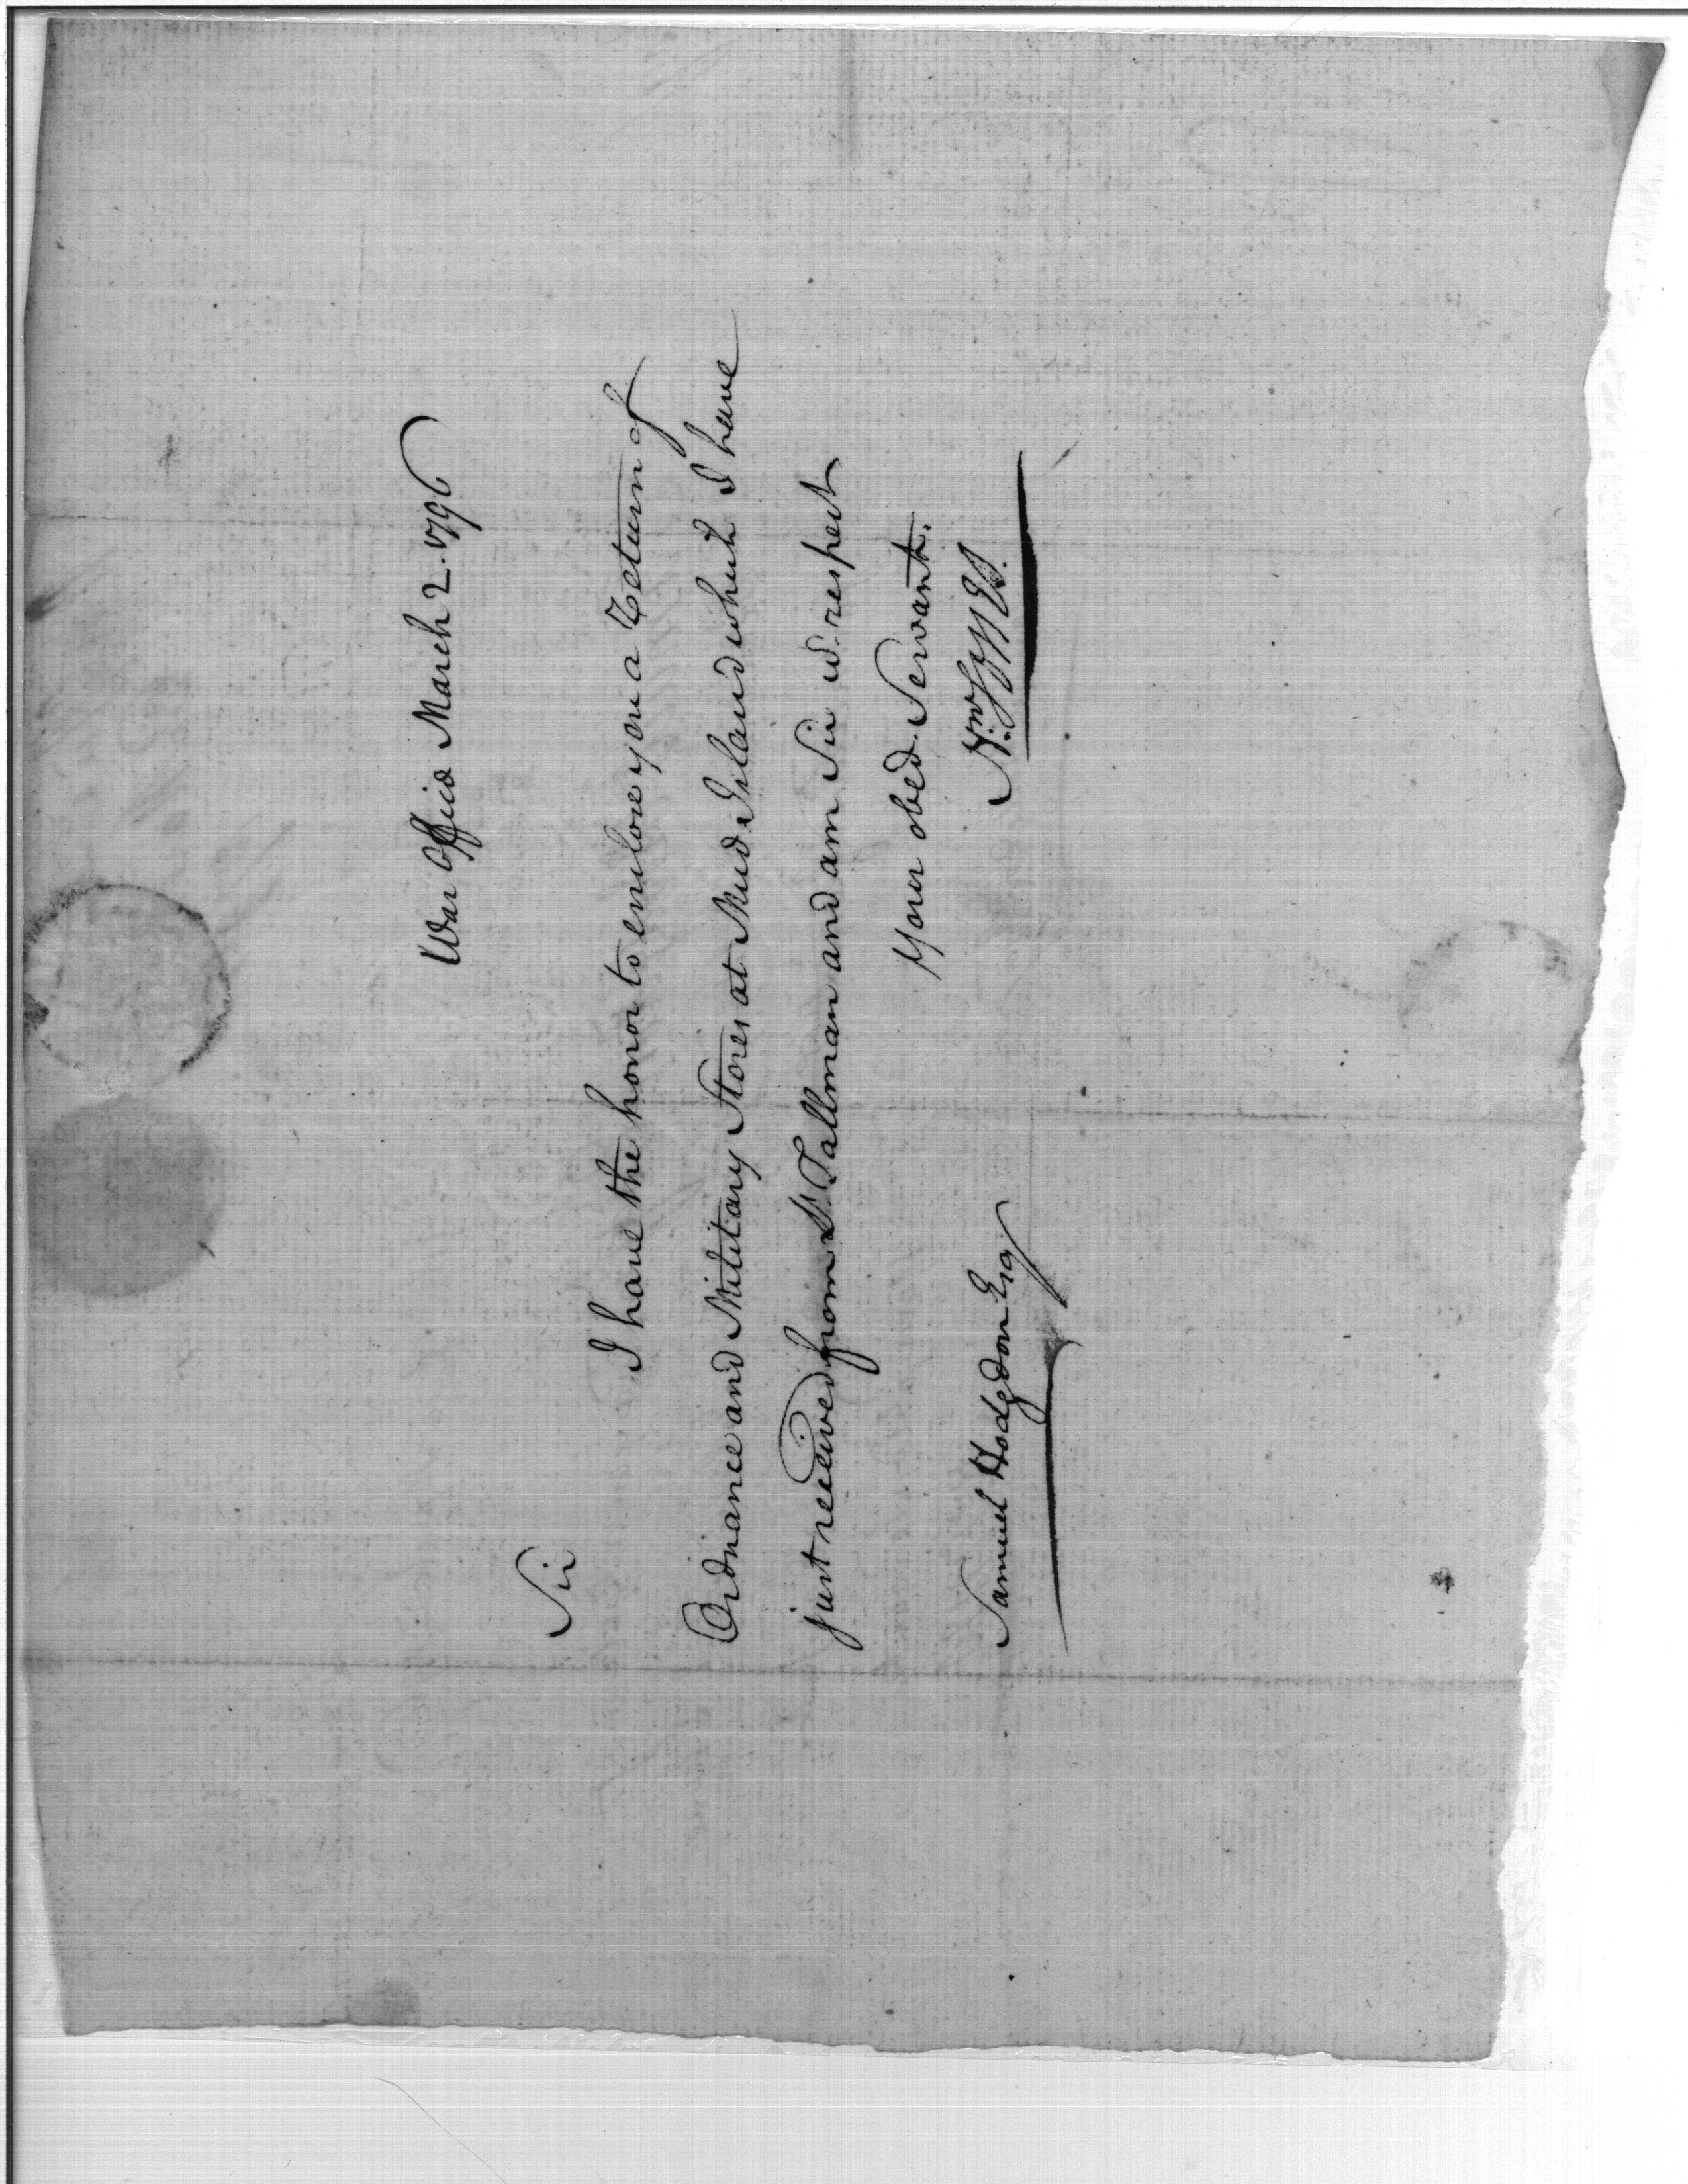 War Office March 2. 1796
Sir
I have the honor to enclose you a Return of
Ordnance and Military Stores at Mud Island which I have
just received from Tallman and am Sir w. respect
Your obed. Servant.
Samuel Hodgdon Esq